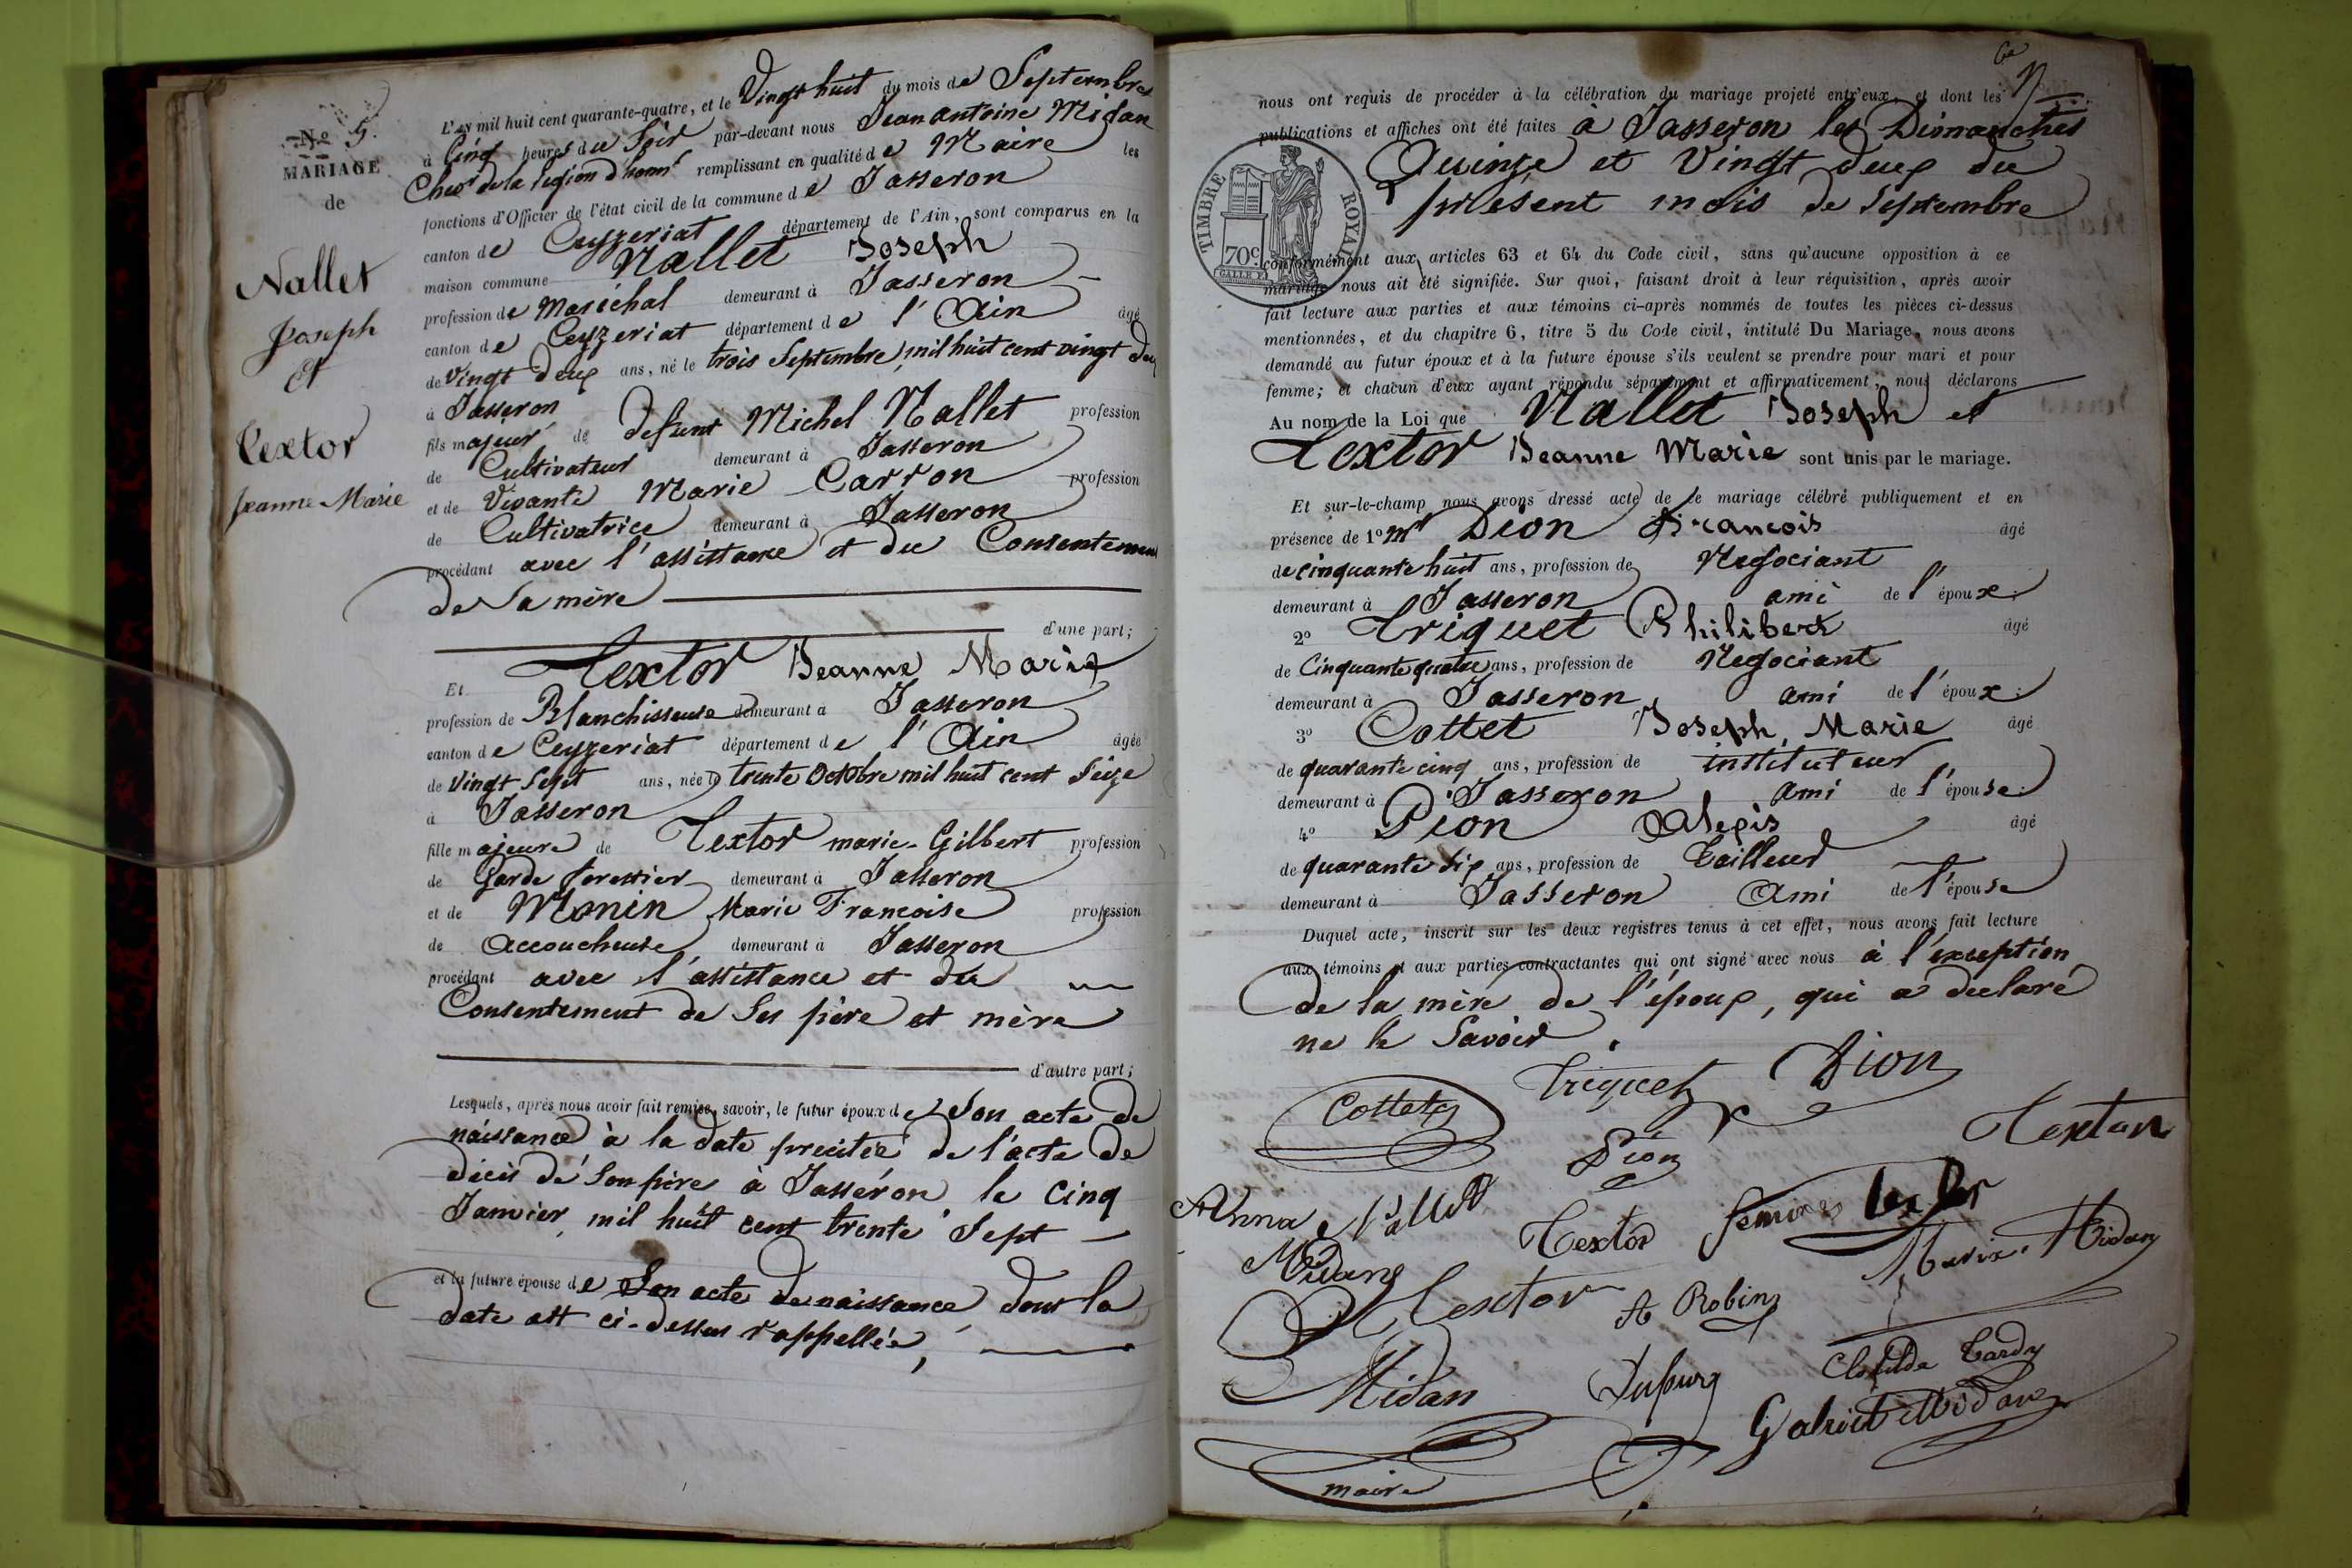 N.o 5.
MARIAGE
de
Nallet
Joseph
et
Textor
Jeanne Marie
L'an mil huit cent quarante-quatre, et le Vingt huit du mois de Septembre
à Cinq heures du Soir par-devant nous Jean Antoine Midan
Cher de la légion d'honr remplissant en qualité de Maire les
fonctions d'Officier de l'état civil de la commune de Jasseron
canton de Ceyzeriat département de l'Ain, sont comparus en la
maison commune Nallet Joseph
profession de Maréchal demeurant à Jasseron
canton de Ceyzeriat département de l'Ain âgé
de Vingt deux ans, né le trois Septembre, mil huit cent vingt deux
à Jasseron
fils majeur de defunt Michel Nallet profession
de Cultivateur demeurant à Jasseron
et de Vivante Marie Carron profession
de Cultivatrice demeurant à Jasseron
procédant avec l'assistance et du Consentement
de Sa mère
d'une part;
Et Textor Jeanne Marie
profession de Blanchisseuse demeurant à Jasseron
canton de Ceyzeriat département de l'Ain âgée
de Vingt Sept ans, née le trente Octobre mil huit cent Seize
à Jasseron
fille majeure de Textor marie-Gilbert profession
de Garde forestier demeurant à Jasseron
et de Monin Marie Francoise profession
de Accoucheuse demeurant à Jasseron
procédant avec l'assistance et du
Consentement de Ses père et mère
d'autre part;
Lesquels, après nous avoir fait remise, savoir, le futur époux de Son acte de
naissance à la date precitée de l'acte de
décès de Son père à Jasseron, le Cinq
Janvier, mil huit cent trente Sept
et la future épouse de Son acte de naissance dont la
date est ci-dessus rappellée,
nous ont requis de procéder à la célébration du mariage projeté entr'eux, et dont les
publications et affiches ont été faites à Jasseron les Dimanches
Quinze et Vingt deux du
présent mois de Septembre
TIMBRE ROYAL
70c
conformément aux articles 63 et 64 du Code civil, sans qu'aucune opposition à ce
mariage nous ait été signifiée. Sur quoi, faisant droit à leur réquisition, après avoir
fait lecture aux parties et aux témoins ci-après nommés de toutes les pièces ci-dessus
mentionnées, et du chapitre 6, titre 5 du Code civil, intitulé Du Mariage, nous avons
demandé au futur époux et à la future épouse s'ils veulent se prendre pour mari et pour
femme; et chacun d'eux ayant répondu séparément et affirmativement, nous déclarons
Au nom de la Loi que Nallet Joseph et
Textor Jeanne Marie sont unis par le mariage.
Et sur-le-champ nous avons dressé acte de ce mariage célébré publiquement et en
présence de 1o Mr Dion Francois âgé
de cinquante huit ans, profession de Negociant
demeurant à Jasseron ami de l'époux;
2o Triquet Philibert âgé
de Cinquante quatre ans, profession de Negociant
demeurant à Jasseron ami de l'époux;
3o Cottet Joseph, Marie âgé
de quarante cinq ans, profession de instituteur
demeurant à Jasseron ami de l'épouse;
4o Pion Alexis âgé
de quarante six ans, profession de Tailleur
demeurant à Jasseron Ami de l'épouse
Duquel acte, inscrit sur les deux registres tenus à cet effet, nous avons fait lecture
aux témoins et aux parties contractantes qui ont signé avec nous à l'exception
de la mère de l'époux, qui a declaré
ne le Savoir.
Cottet Triquet Dion
Pion Textor
Anna Midan Nallet
Textor
Marie Midan
Textor A Robin
Midan Dufour Clotilde Tardy
Gabriel Midan
maire